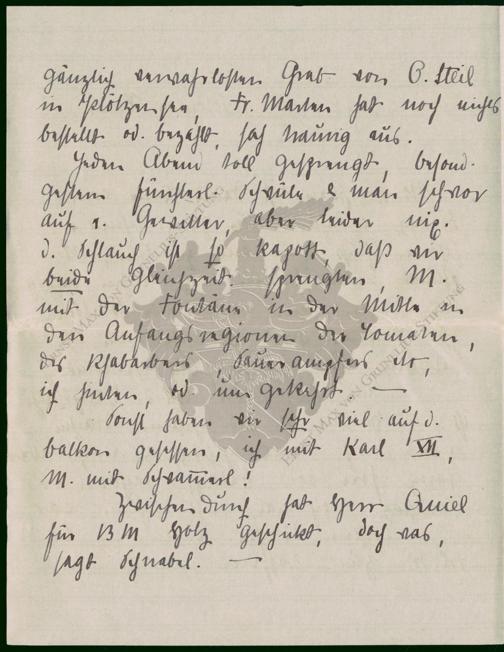 gänzlich verwahrlosten Grab von C. Steil
in Plötzensee, Fr. Marten hat noch nichts
bestellt od. bezahlt, sah traurig aus.
Jeden Abend toll gesprengt, besond.
gestern fürchterl. Schwüle & man schwor
auf e. Gewitter, aber leider nix.
d. Schlauch ist so kaputt, daß wir
beide gleichzeit. sprengten, M.
mit der Fontäne in der Mitte in
den Anfangsregionen der Tomaten,
des Rhabarbers, Sauerampfers etc,
ich hinten, od. umgekehrt. —
Sonst haben wir sehr viel auf d.
balkon gesessen, ich mit Karl XII,
M. mit Schwam̅erl!
Zwischendurch hat Herr
für 13 M Holz geschickt, doch was,
sagt Schnabel. —